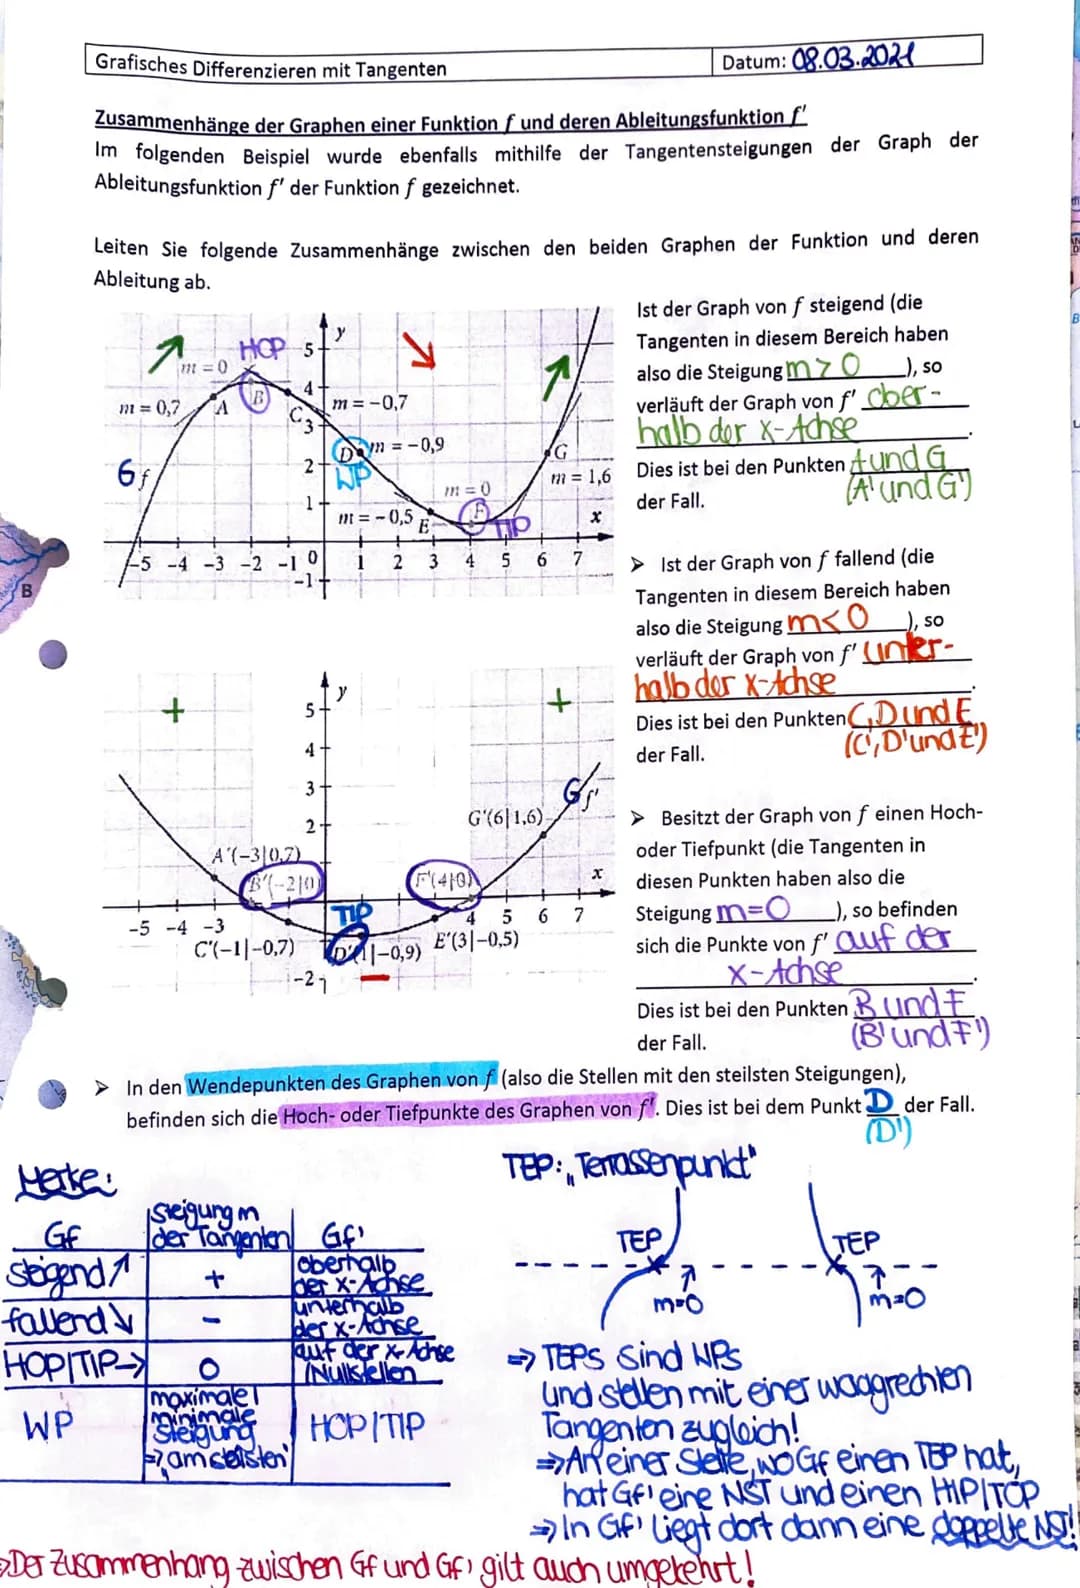 Grafisches Differenzieren mit Tangenten
Datum: 08.03.2021
Zusammenhänge der Graphen einer Funktion f und deren Ableitungsfunktion f'
Im folgenden Beispiel wurde ebenfalls mithilfe der Tangentensteigungen der Graph der
Ableitungsfunktion f' der Funktion f gezeichnet.
Leiten Sie folgende Zusammenhänge zwischen den beiden Graphen der Funktion und deren
Ableitung ab.
HOP 5 y
m = 0
4
m = 0,7 A B C m = -0,7
3
D m = -0,9
Gf
2 WP
G
m = 0
m = 1,6
1
m = -0,5 E F TIP
x
-5 -4 -3 -2 -1 0 1 2 3 4 5 6 7
-1
Ist der Graph von f steigend (die
Tangenten in diesem Bereich haben
also die Steigung m > 0), so
verläuft der Graph von f' ober-
halb der x-Achse.
Dies ist bei den Punkten A und G
(A' und G')
der Fall.
➤ Ist der Graph von f fallend (die
Tangenten in diesem Bereich haben
also die Steigung m<0), so
verläuft der Graph von f' unter-
halb der x-Achse.
Dies ist bei den Punkten C, D und E
(C', D' und E')
der Fall.
+ y +
5
4
3
Gf'
2
G'(6|1,6)
A'(-3|0,7)
B'(-2|0) F'(4|0) x
-5 -4 -3 TIP 4 5 6 7
C'(-1|-0,7) D'(1|-0,9) E'(3|-0,5)
-2 –
➤ Besitzt der Graph von f einen Hoch-
oder Tiefpunkt (die Tangenten in
diesen Punkten haben also die
Steigung m=0), so befinden
sich die Punkte von f' auf der
x-Achse.
Dies ist bei den Punkten B und F
(B' und F')
der Fall.
➤ In den Wendepunkten des Graphen von f (also die Stellen mit den steilsten Steigungen),
befinden sich die Hoch- oder Tiefpunkte des Graphen von f'. Dies ist bei dem Punkt D der Fall.
(D')
Merke:
Gf | Steigung m der Tangenten | Gf'
steigend ↗ | + | oberhalb der x-Achse
fallend ↘ | - | unterhalb der x-Achse
HOP|TIP→ | 0 | auf der x-Achse (Nullstellen
WP | maximale | minimale Steigung => „am steilsten" | HOP|TIP
TEP: „Terrassenpunkt"
TEP TEP
m=0 m=0
=> TEPs sind WPs
und stellen mit einer waagrechten
Tangenten zugleich!
=> An einer Stelle, wo Gf einen TEP hat,
hat Gf' eine NST und einen HIP|TOP
=> In Gf' liegt dort dann eine doppelte NST!
Der Zusammenhang zwischen Gf und Gf' gilt auch umgekehrt!
B
B